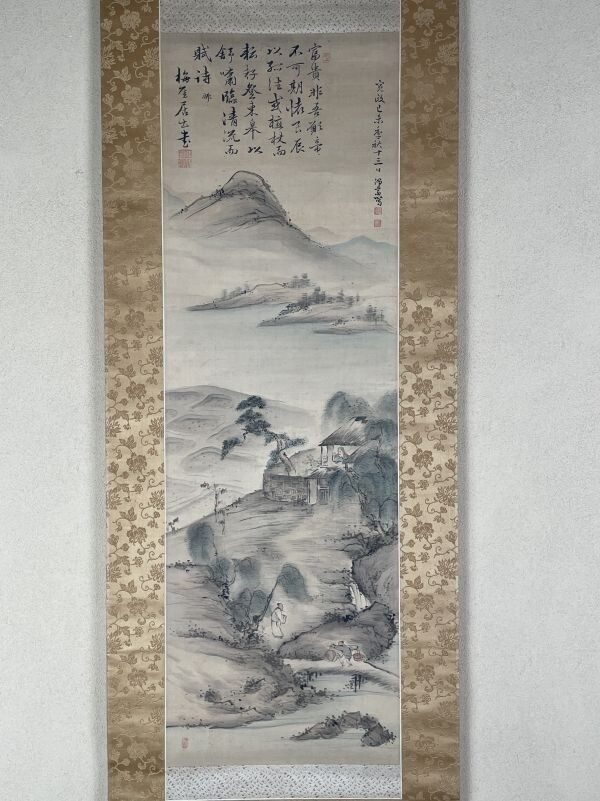 寛政己未季秋十三日寫
富貴非吾願帝
不可期懐良辰
以孤往或植杖而
耘耔登東皐以
舒嘯臨清流而
賦詩 郷
梅厓居士書